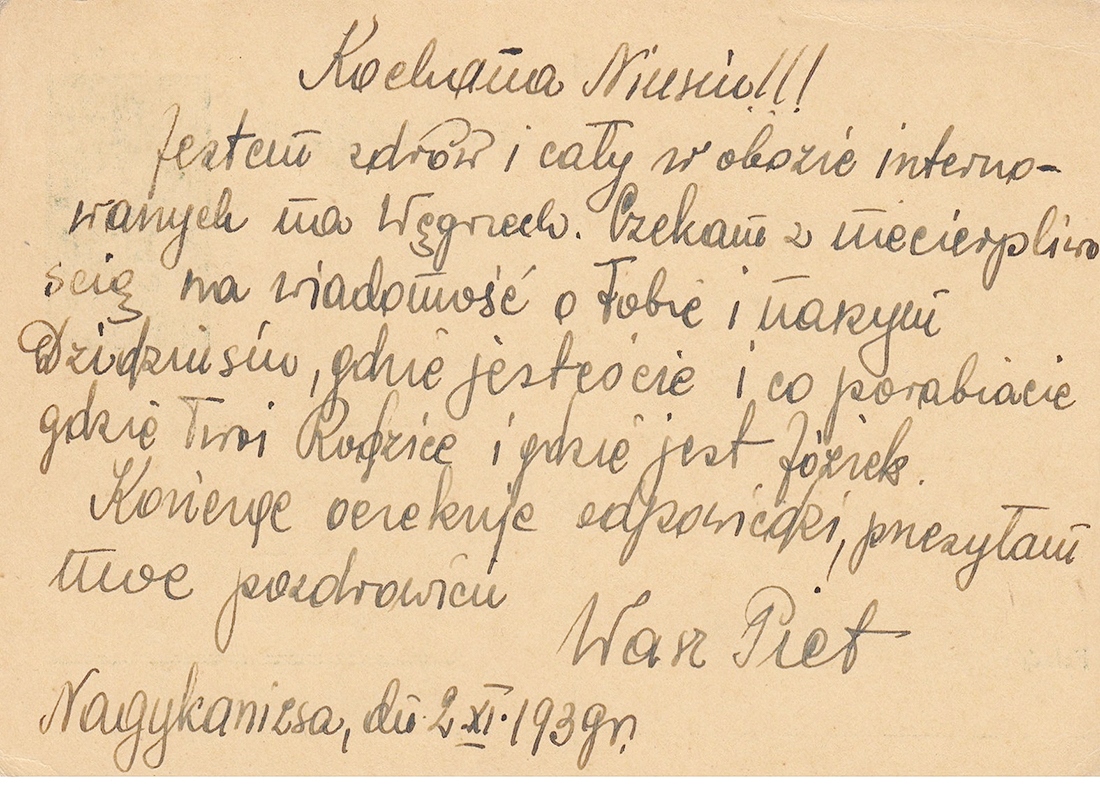 Kochana Niusiu!!!
Jestem zdrów i cały w obozie interno-
wanych na Węgrzech. Czekam z niecierpliwo
ścią na wiadomość o Tobie i naszym
Dzidziusiu, gdzie jesteście i co porabiacie
gdzie Twoi Rodzice i gdzie jest Józiek.
Kończąc oczekuję odpowiedzi, przesyłam
moc pozdrowień
Wasz Piet
Nagykanizsa, dn. 2.XI.1939r.